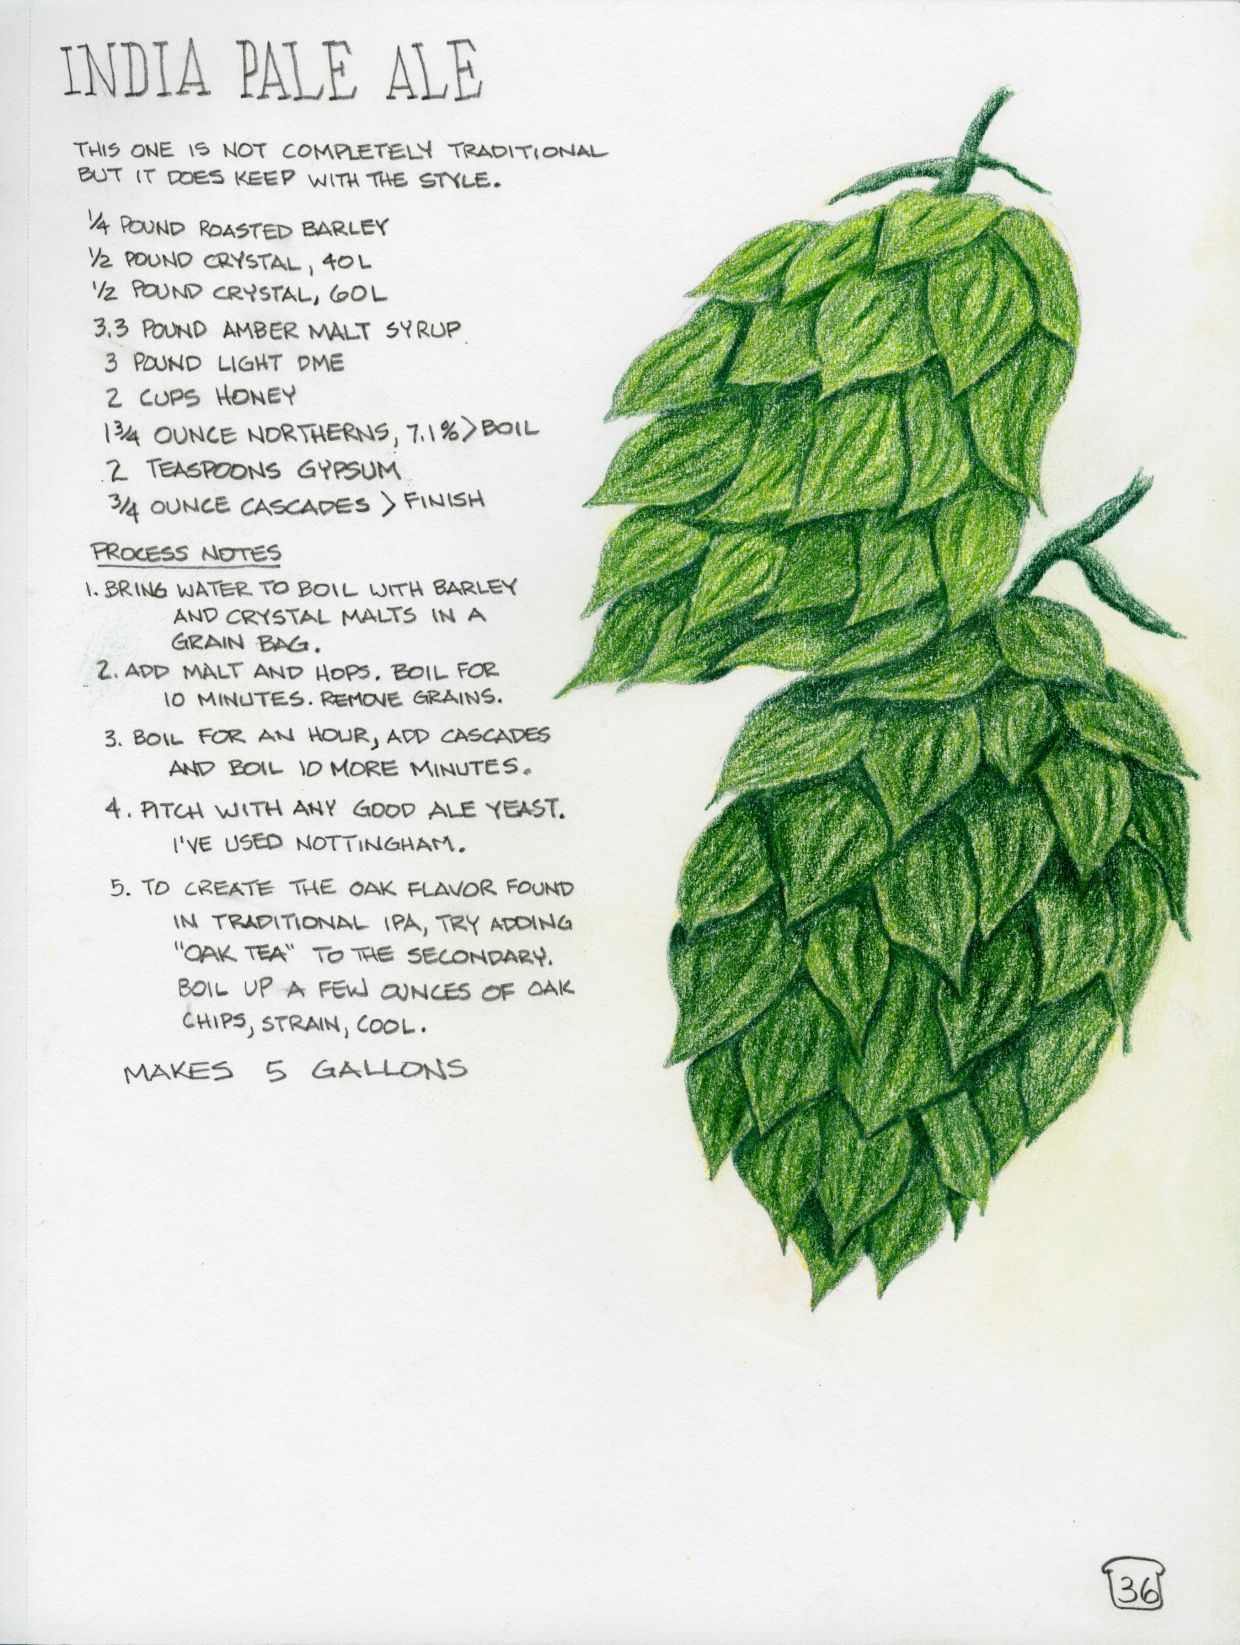 INDIA PALE ALE
THIS ONE IS NOT COMPLETELY TRADITIONAL
BUT IT DOES KEEP WITH THE STYLE.
1/4 POUND ROASTED BARLEY
1/2 POUND CRYSTAL, 40L
1/2 POUND CRYSTAL, 60L
3.3 POUND AMBER MALT SYRUP
3 POUND LIGHT DME
2 CUPS HONEY
1 3/4 OUNCE NORTHERNS, 7.1% > BOIL
2 TEASPOONS GYPSUM
3/4 OUNCE CASCADES > FINISH
PROCESS NOTES
1. BRING WATER TO BOIL WITH BARLEY
AND CRYSTAL MALTS IN A
GRAIN BAG.
2. ADD MALT AND HOPS. BOIL FOR
10 MINUTES. REMOVE GRAINS.
3. BOIL FOR AN HOUR, ADD CASCADES
AND BOIL 10 MORE MINUTES.
4. PITCH WITH ANY GOOD ALE YEAST.
I'VE USED NOTTINGHAM.
5. TO CREATE THE OAK FLAVOR FOUND
IN TRADITIONAL IPA, TRY ADDING
"OAK TEA" TO THE SECONDARY.
BOIL UP A FEW OUNCES OF OAK
CHIPS, STRAIN, COOL.
MAKES 5 GALLONS
36